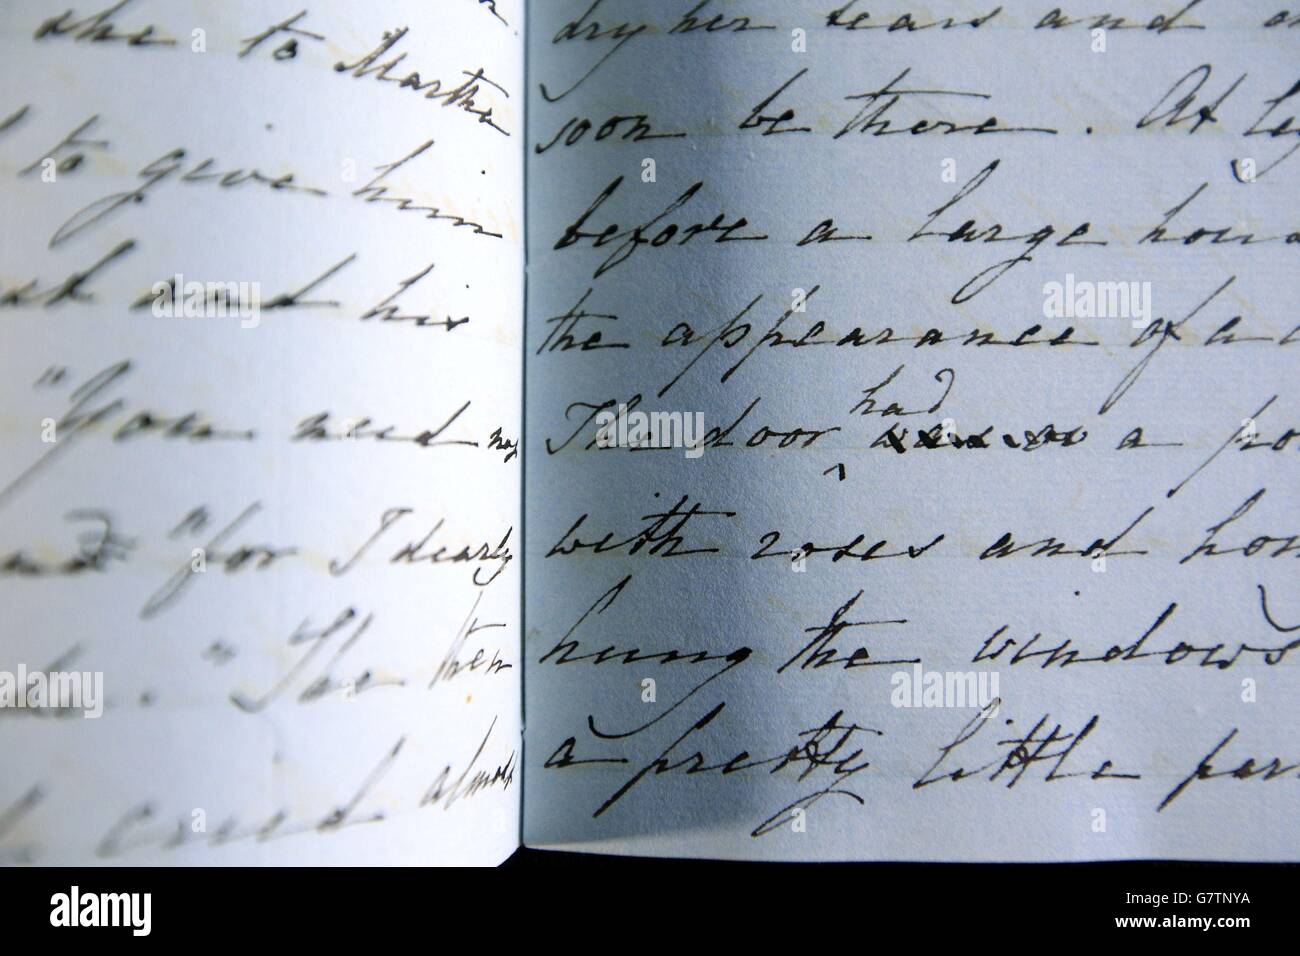 she to Martha
to give him
and his
"You need not
"for I dearly
" The then
cried almost
dry her tears and
soon be there. At
before a large
the appearance of a
had
The door a
with roses and
hung the windows
a pretty little
alamy
Image ID: G7TNYA
www.alamy.com